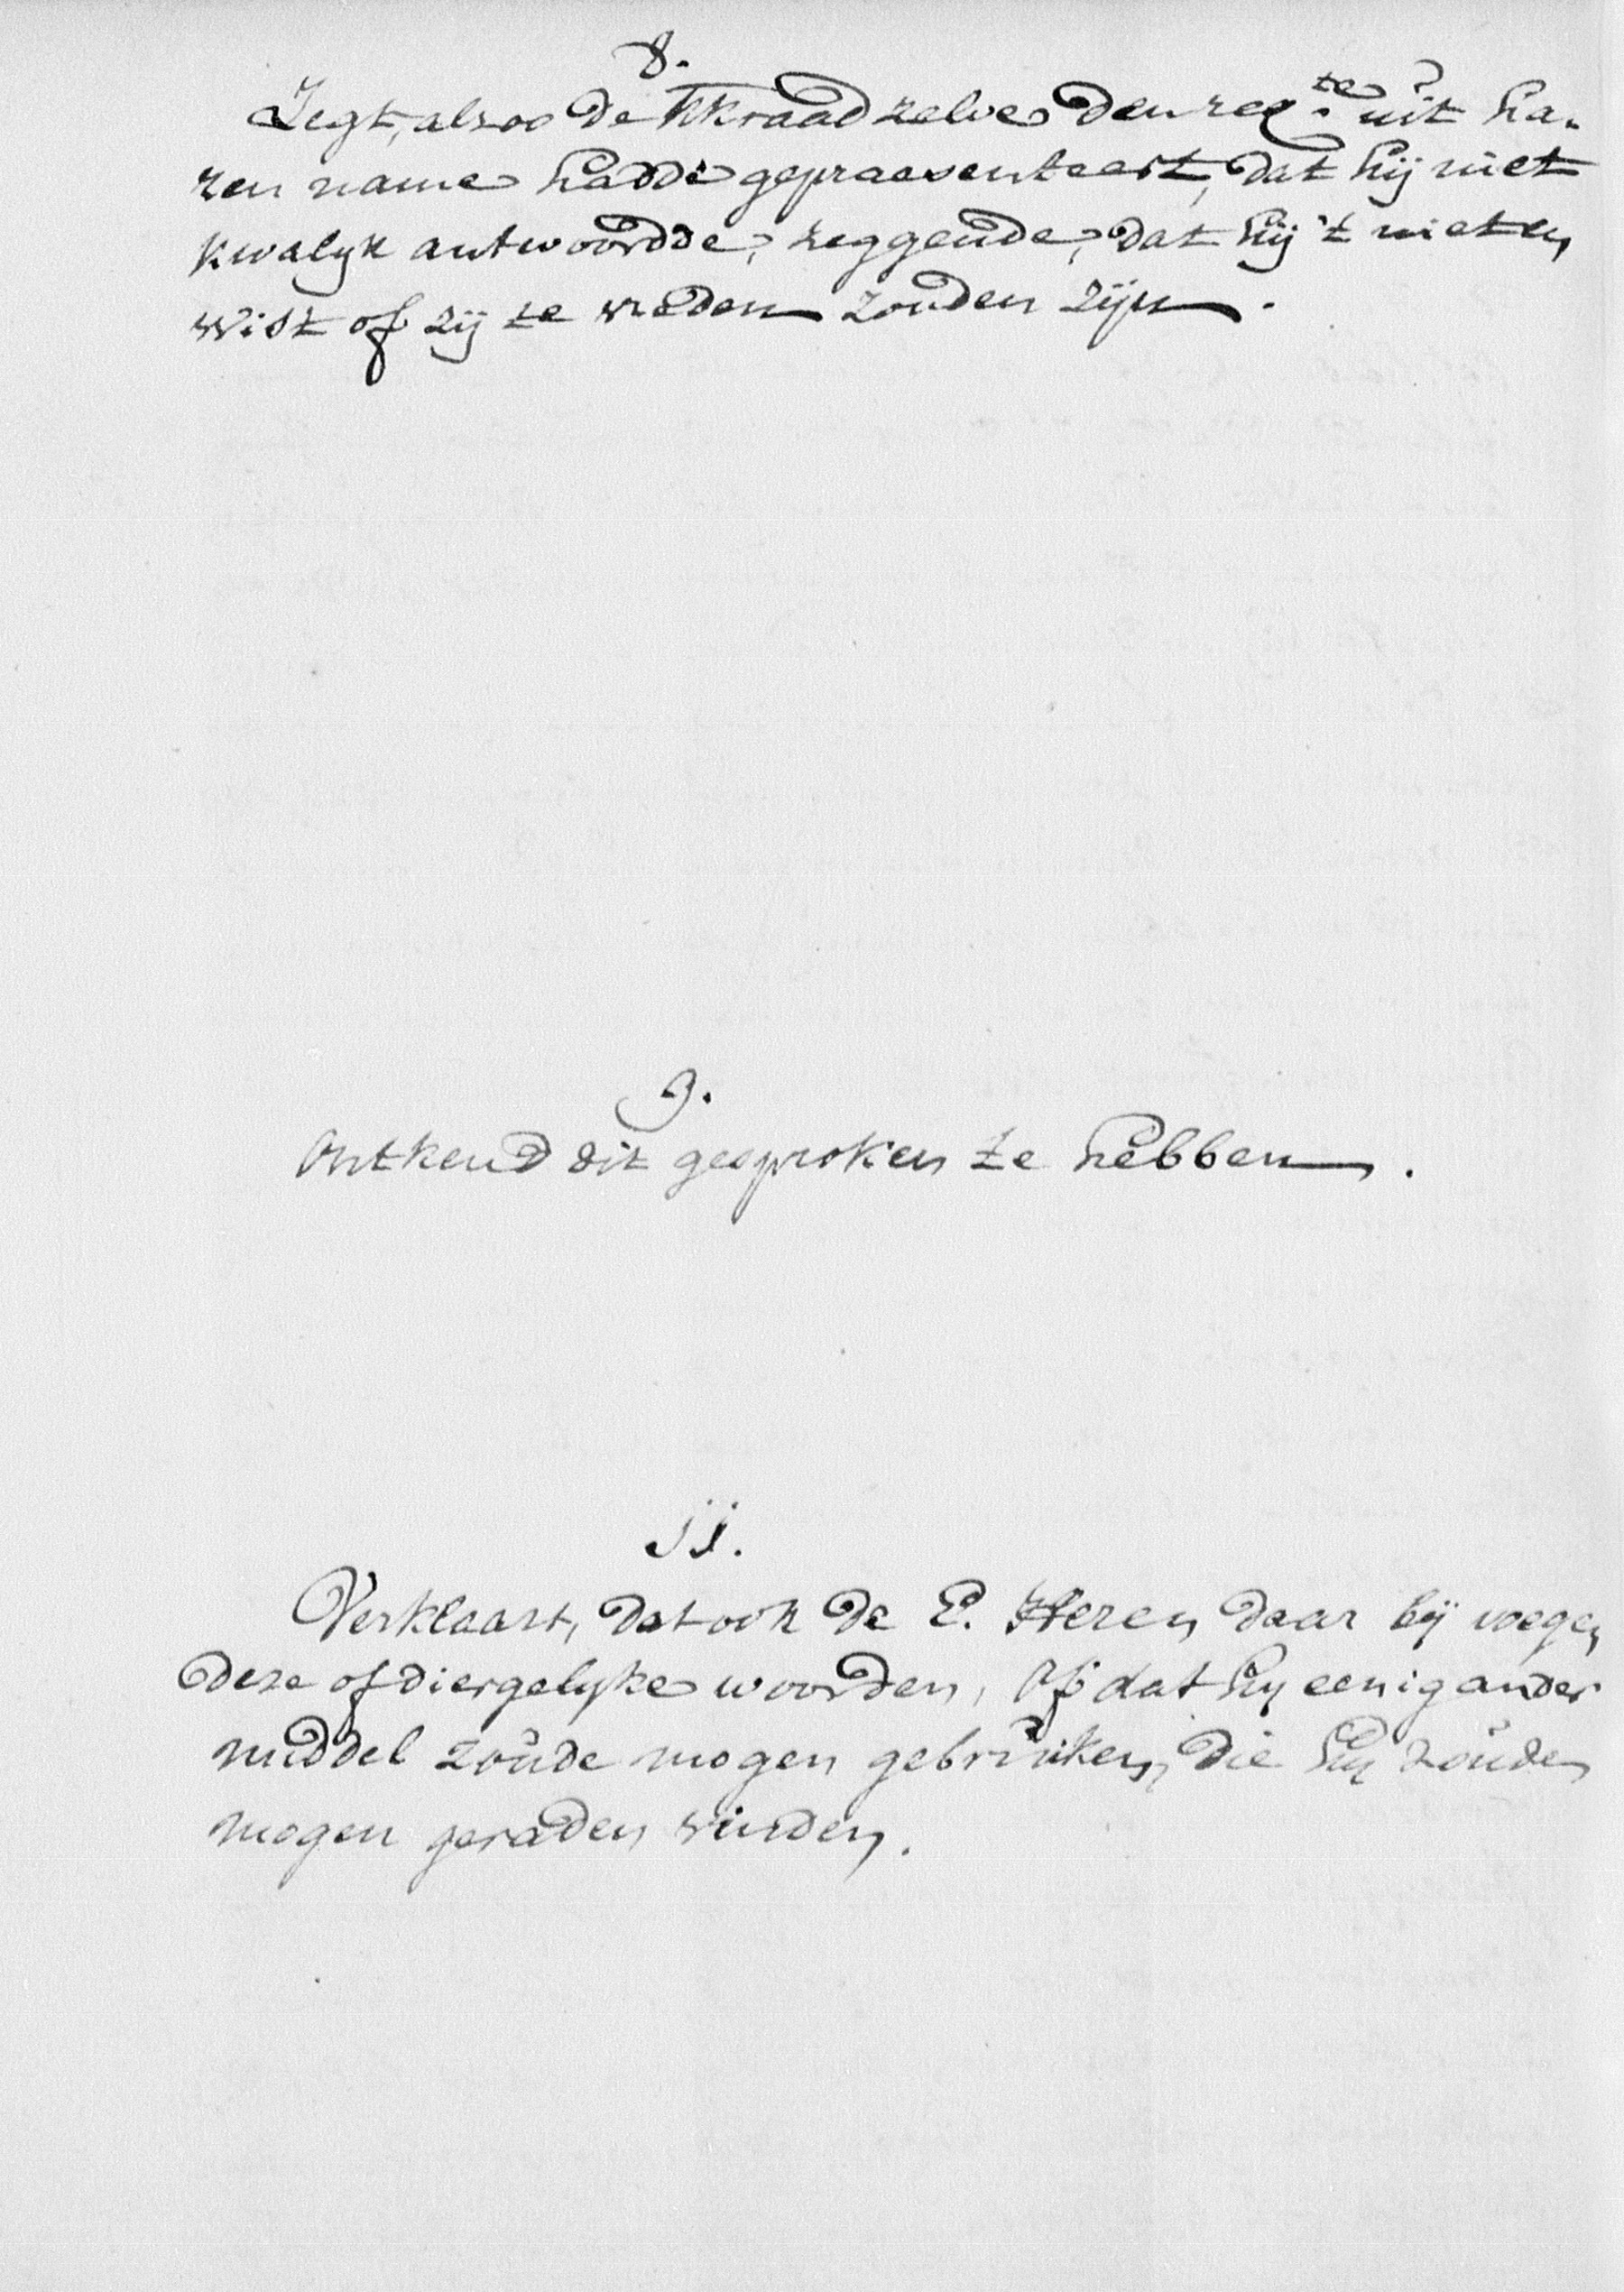 8.
Zegt, alzoo de kkraad zelve den req.te uit ha-
ren name hadde gepraesenteert, dat hij niet
kwalyk antwoordde, zeggende, dat hij 't niet en
wist of zij te vreden zouden zijn.
9.
Ontkend dit gesproken te hebben.
11.
Verklaart, dat ook de E. Heren daar bij voegen
deze of diergelyke woorden, Of dat hij eenig ander
middel zoude mogen gebruiken, die hij zoude
mogen geraden vinden.